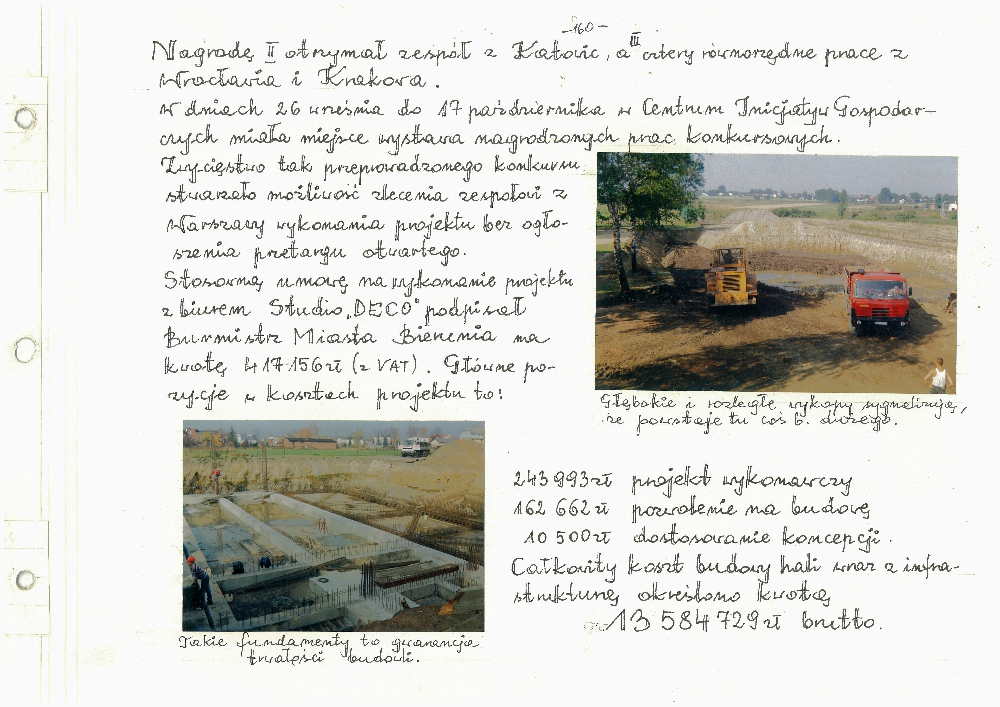 -160-
Nagrodę II otrzymał zespół z Katowic, a III cztery równorzędne prace z
Wrocławia i Krakowa.
W dniach 26 września do 17 października w Centrum Inicjatyw Gospodar-
czych miała miejsce wystawa nagrodzonych prac konkursowych.
Zwycięstwo tak przeprowadzonego konkursu
stwarzało możliwość zlecenia zespołowi z
Warszawy wykonania projektu bez ogło-
szenia przetargu otwartego.
Stosowną umowę na wykonanie projektu
z biurem Studio „DECO" podpisał
Burmistrz Miasta Bierunia na
kwotę 417 156 zł (z VAT). Główne po-
zycje w kosztach projektu to:
Głębokie i rozległe wykopy sygnalizują,
że powstaje tu coś b. dużego.
243 993 zł projekt wykonawczy
162 662 zł pozwolenie na budowę
10 500 zł dostosowanie koncepcji.
Całkowity koszt budowy hali wraz z infra-
strukturą określono kwotą
13 584 729 zł brutto.
Takie fundamenty to gwarancja
trwałości budowli.